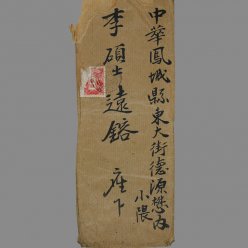 中華鳳城縣東大街德源懋內
小隈
李碩士遠鎔 座下